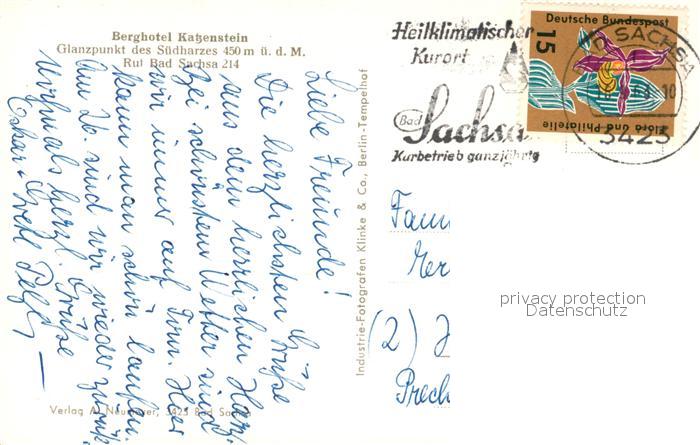 Berghotel Katzenstein
Glanzpunkt des Südharzes 450 m ü. d. M.
Ruf Bad Sachsa 214
Liebe Freunde!
Die herzlichsten Grüße
aus dem herrlichen Harz.
Bei schönstem Wetter sind
wir immer auf Tour. Hier
kann man schön laufen.
Am 26 sind wir wieder zurück.
Nochmals herzl. Grüße
Oskar
Verlag A. Neumayer, 3423 Bad Sachsa
Industrie-Fotografen Klinke & Co., Berlin-Tempelhof
Heilklimatischer
Kurort
Bad
Sachsa
Kurbetrieb ganzjährig
Deutsche Bundespost
15
Flora und Philatelie
SACHSA
3423
Fam
(2)
privacy protection
Datenschutz